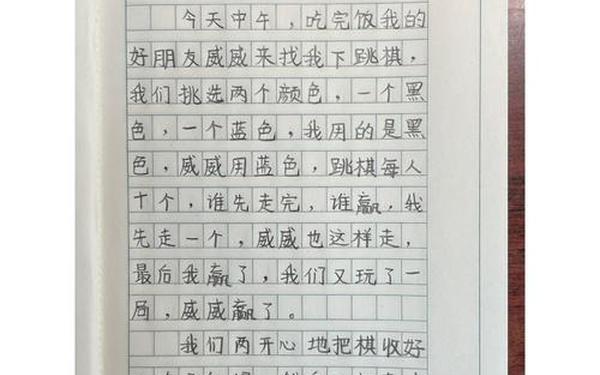 今天中午，吃完饭我的
好朋友威威来找我下跳棋，
我们挑选两个颜色，一个黑
色，一个蓝色，我用的是黑
色，威威用蓝色，跳棋每人
十个，谁先走完，谁赢，我
先走一个，威威也这样走，
最后我赢了，我们又玩了一
局，威威赢了。
我们两开心地把棋收好